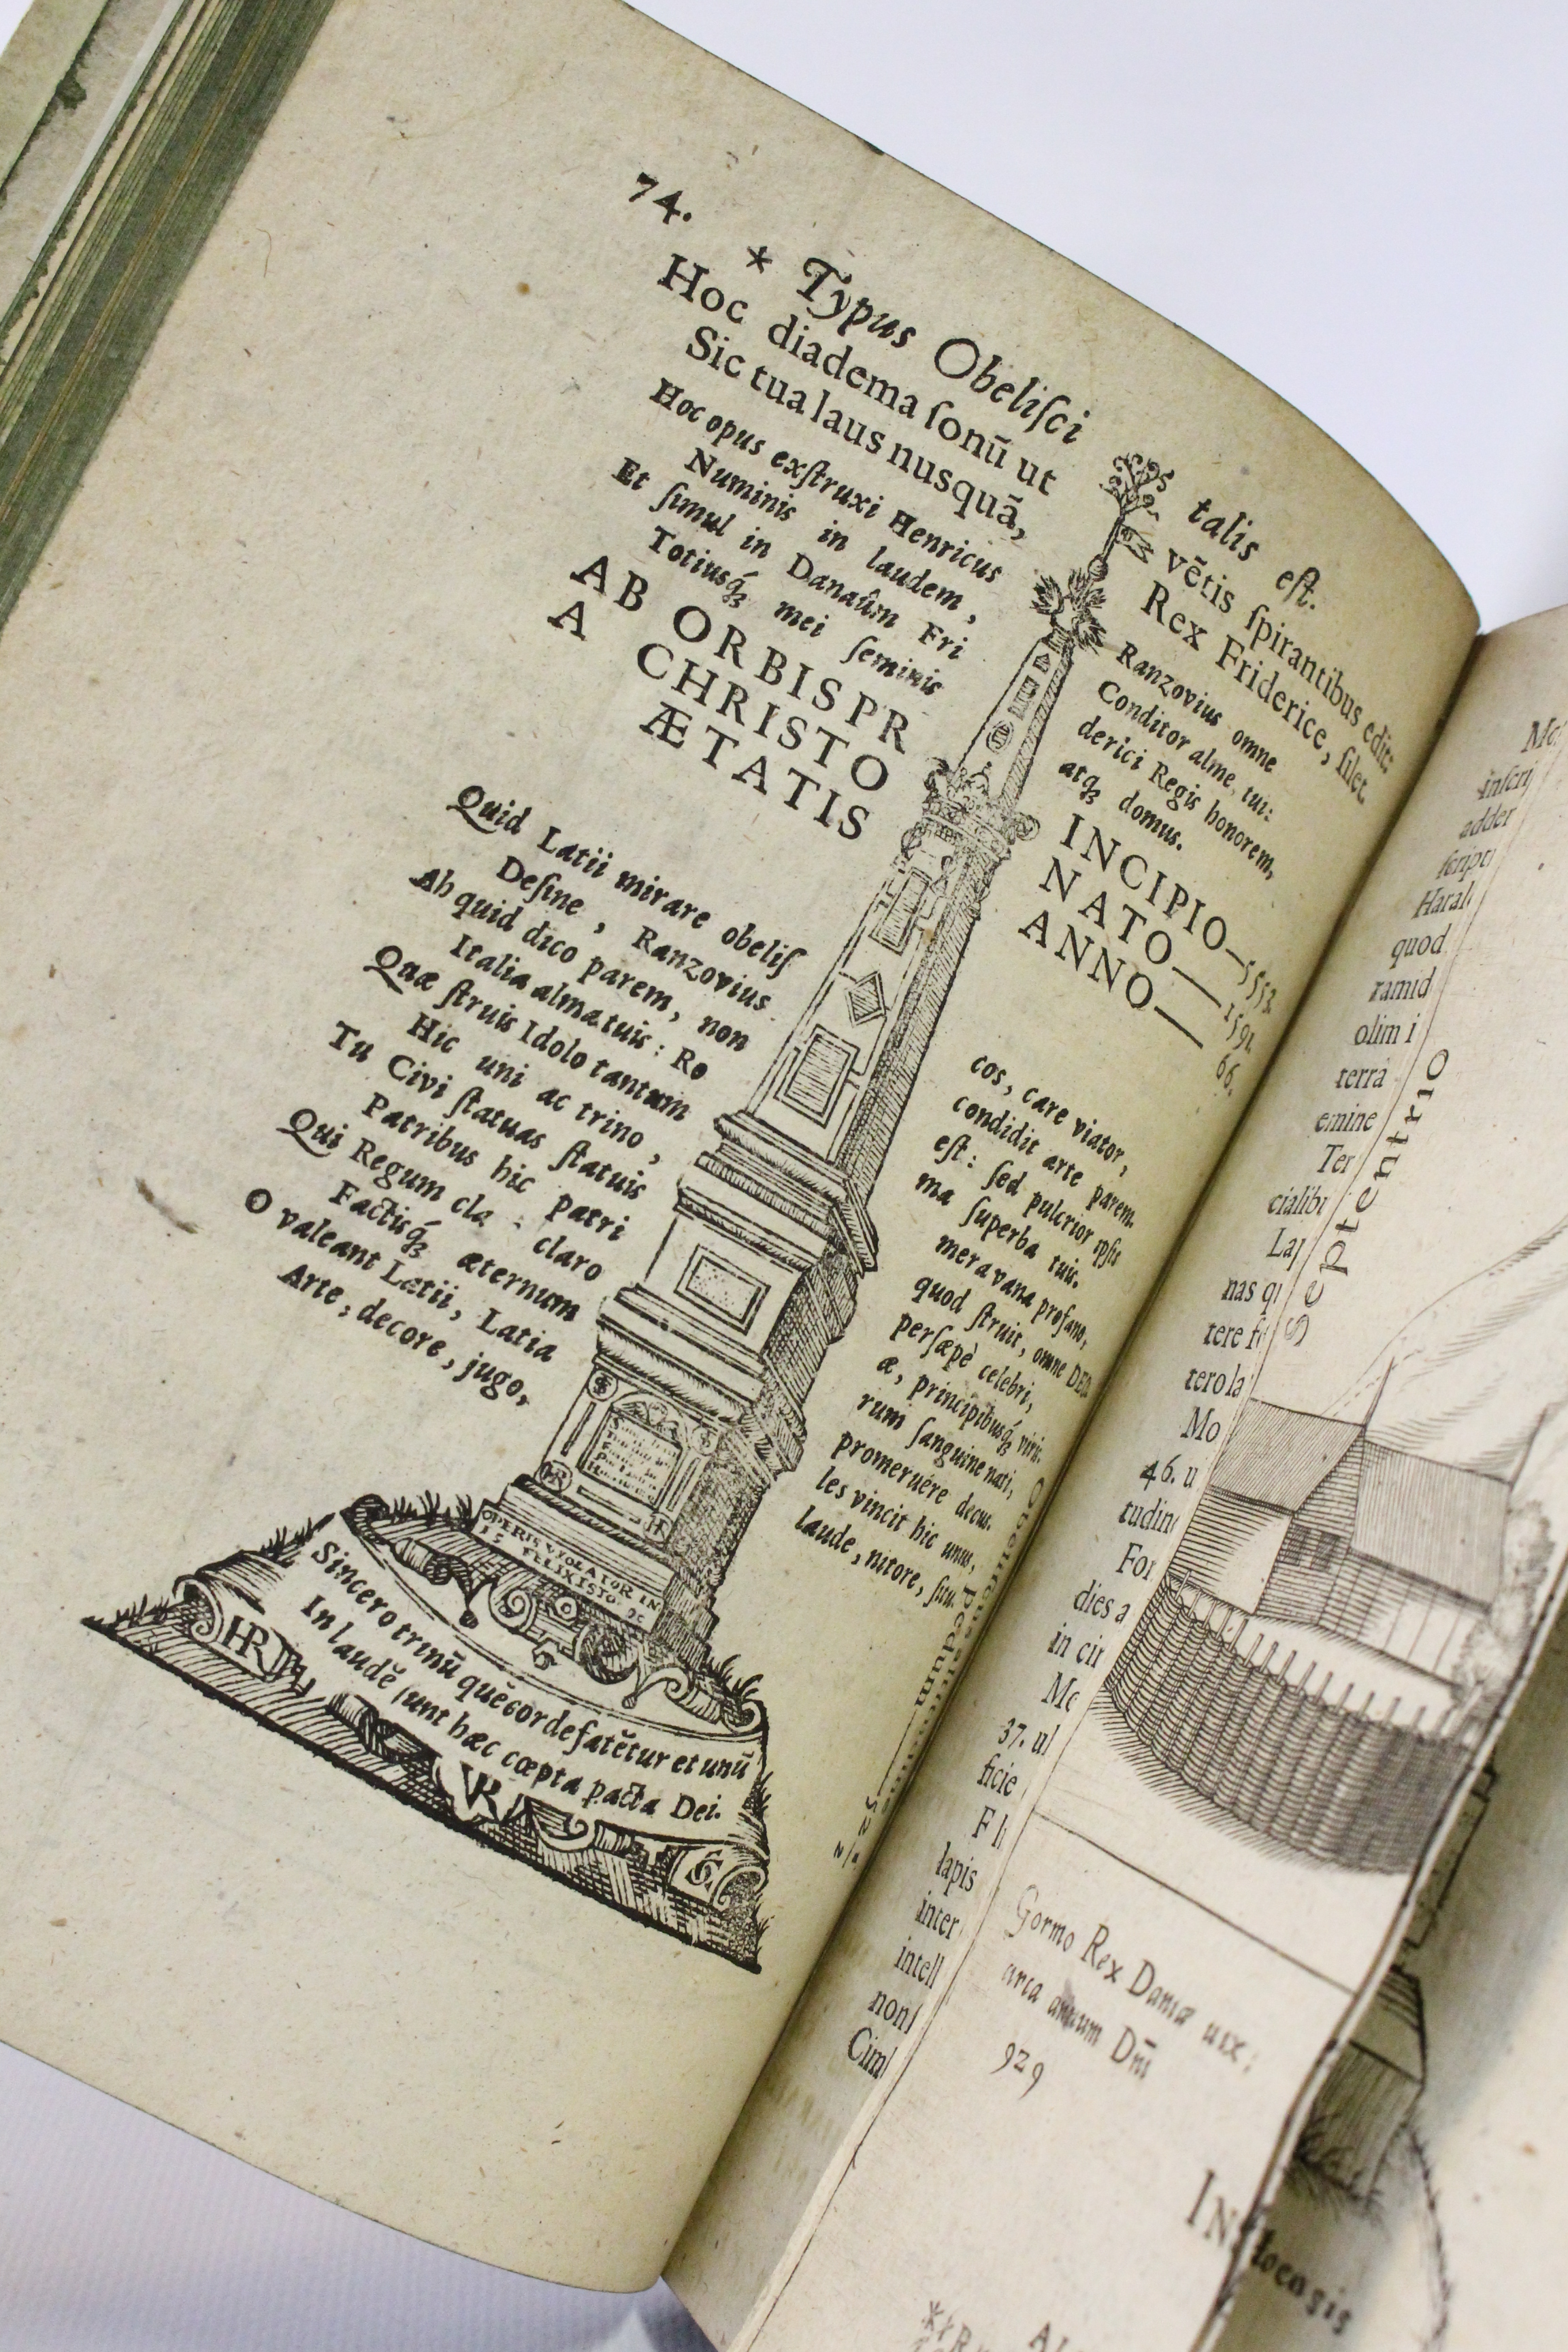 74.
* Typus Obeliſci talis eſt.
Hoc diadema ſonū ut vētis ſpirantibus edit:
Sic tua laus nusquā, Rex Friderice, ſilet.
Hoc opus exſtruxi Henricus Ranzovius omne
Numinis in laudem, Conditor alme, tui:
Et ſimul in Danaûm Friderici Regis honorem,
Totiusq́ꝫ mei ſeminis atqꝫ domus.
AB ORBIS PR INCIPIO—5552
A CHRISTO NATO—1591
ÆTATIS ANNO—66.
Quid Latii mirare obeliſcos, care viator,
Deſine, Ranzovius condidit arte parem.
Ah quid dico parem, non eſt: ſed pulcrior ipſis
Italia alma tuis: Roma ſuperba tuis.
Quæ ſtruis Idolo tantum mera vana profano,
Hic uni ac trino, quod ſtruit, omne DEO.
Tu Civi ſtatuas ſtatuis perſæpè celebri,
Patribus hic patriæ, principibusq́ꝫ viris.
Qui Regum claro clarorum ſanguine nati,
Factisq́ꝫ æternum promeruere decus.
O valeant Latii, Latiales vincit hic unus,
Arte, decore, jugo, laude, nitore, ſitu.
OPERIS VIOLATOR IN
FELIX ISTO
HR
Sincero trinū quē corde fatētur et unū
In laudē ſunt hæc cœpta pacta Dei.
VR
pedum
inſcri
adder
ſcripti
Haral
quod
ramid
olim i
terrâ
emine
Ter
cialibu
Lap
nas q
tere
tero la
Mo
46. u
tudin
For
dies a
in cir
Me
37. ul
ficie
lapis
inter
intell
non
Cim
Septentrio
Gormo Rex Daniæ uix:
circa annum Dn̄i
929